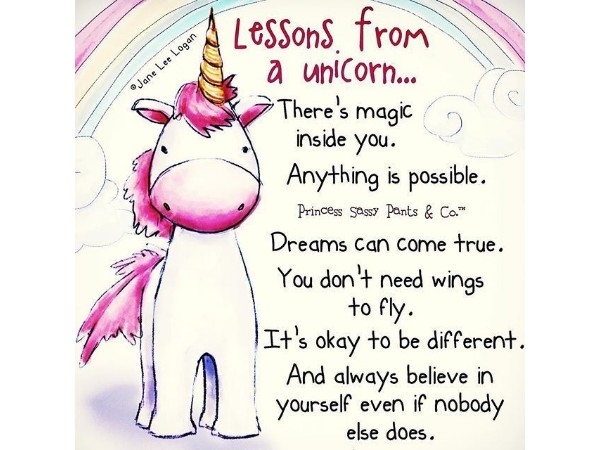 ©Jane Lee Logan
Lessons from
a unicorn...
There's magic
inside you.
Anything is possible.
Princess Sassy Pants & Co.™
Dreams can come true.
You don't need wings
to fly.
It's okay to be different.
And always believe in
yourself even if nobody
else does.